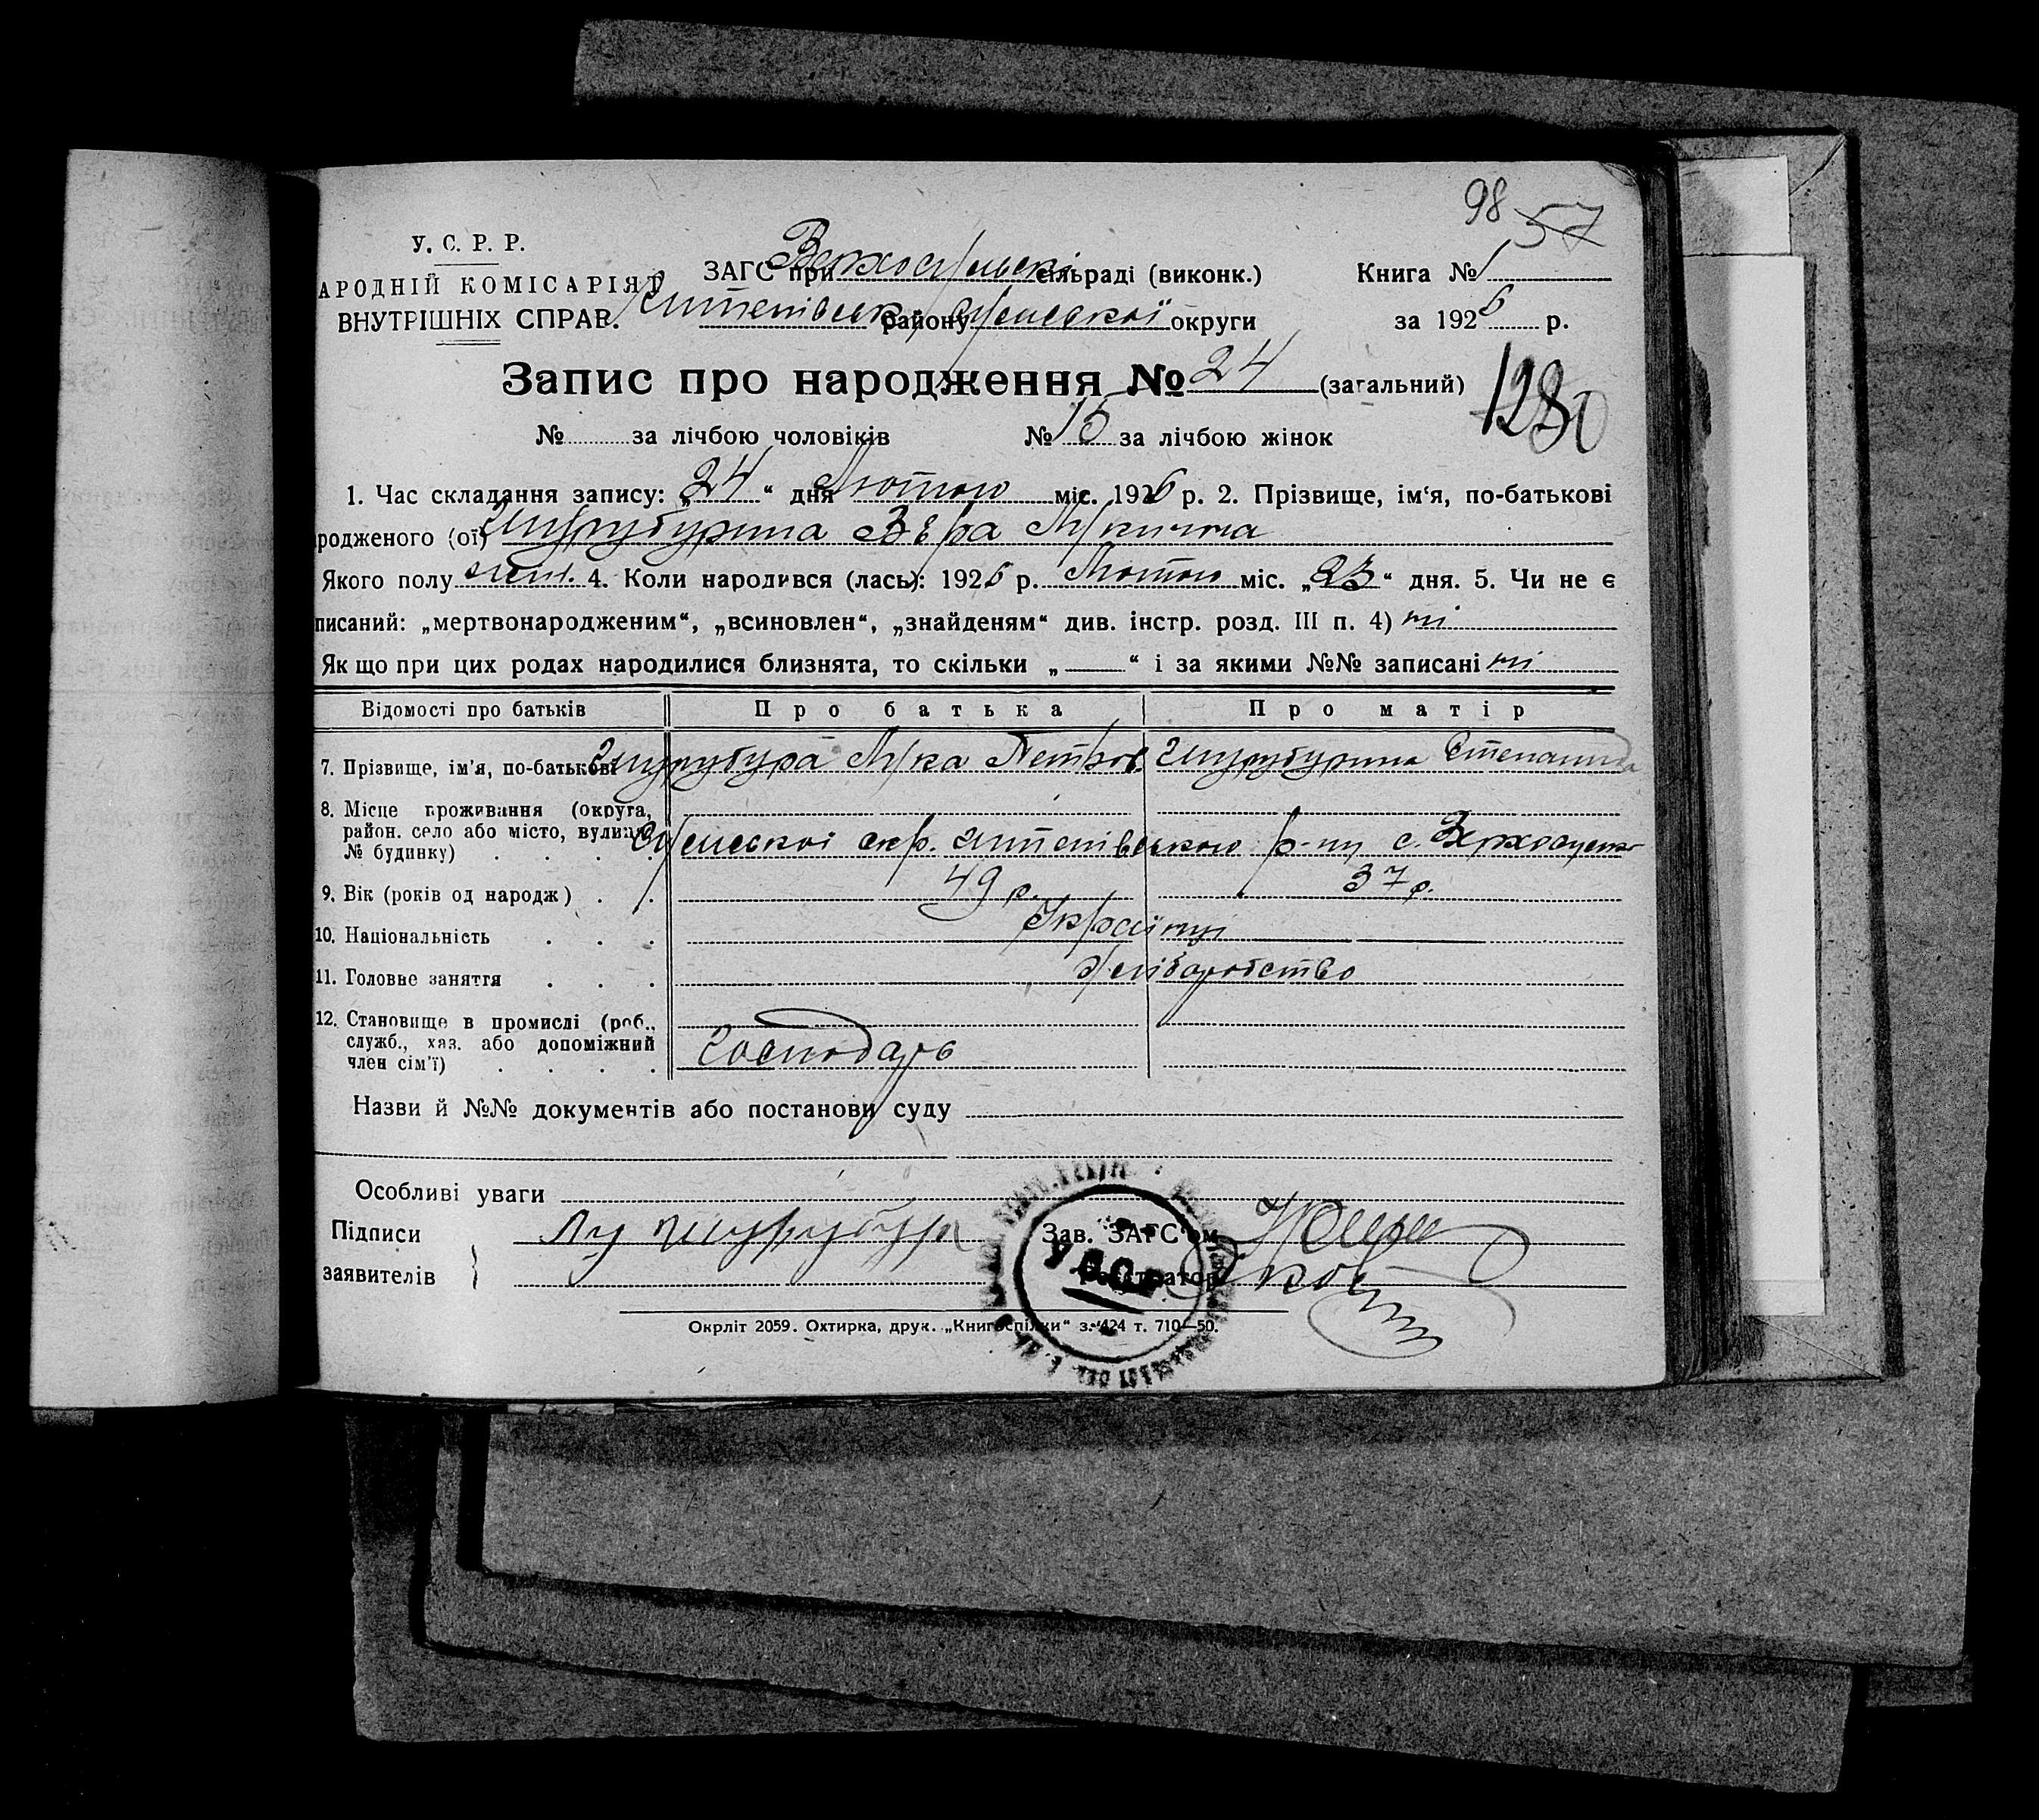 98 57
У. С. Р. Р.
АРОДНІЙ КОМІСАРІЯТ
ВНУТРІШНІХ СПРАВ.
ЗАГС при Верхосульскі сільраді (виконк.)
Штепівськ. району Сумської округи
Книга № 1
за 1926 р.
Запис про народження № 24 (загальний)
1280
№ за лічбою чоловіків № 15 за лічбою жінок
1. Час складання запису: „24“ дня Лютого міс. 1926 р. 2. Прізвище, ім'я, по-батькові
родженого (ої) Шурубурина Вера Лукична
Якого полу жін. 4. Коли народився (лась): 1926 р. Лютого міс. „23“ дня. 5. Чи не є
писаний: „мертвонародженим“, „всиновлен“, „знайденям“ див. інстр. розд. III п. 4) ні
Якщо при цих родах народилися близнята, то скільки „ “ і за якими №№ записані ні
Відомості про батьків Про батька Про матір
7. Прізвище, ім'я, по-батькові Шурубура Лука Петров. Шурубурина Степанида
8. Місце проживання (округа,
район. село або місто, вулиця,
№ будинку) Сумської окр. Штепівського р-ну с. Верхосулка
9. Вік (років од народж) 49 р. 37 р.
10. Національність Українці
11. Головне заняття Хліборобство
12. Становище в промислі (роб.,
служб., хаз. або допоміжний
член сім'ї) Господарь
Назви й №№ документів або постанови суду
Особливі уваги
Підписи
заявителів
Лу Шурубура
Зав. ЗАГС'ом
Реєстратор
УСРР
Окрліт 2059. Охтирка, друк. „Книгоспілки“ з. 424 т. 710—50.